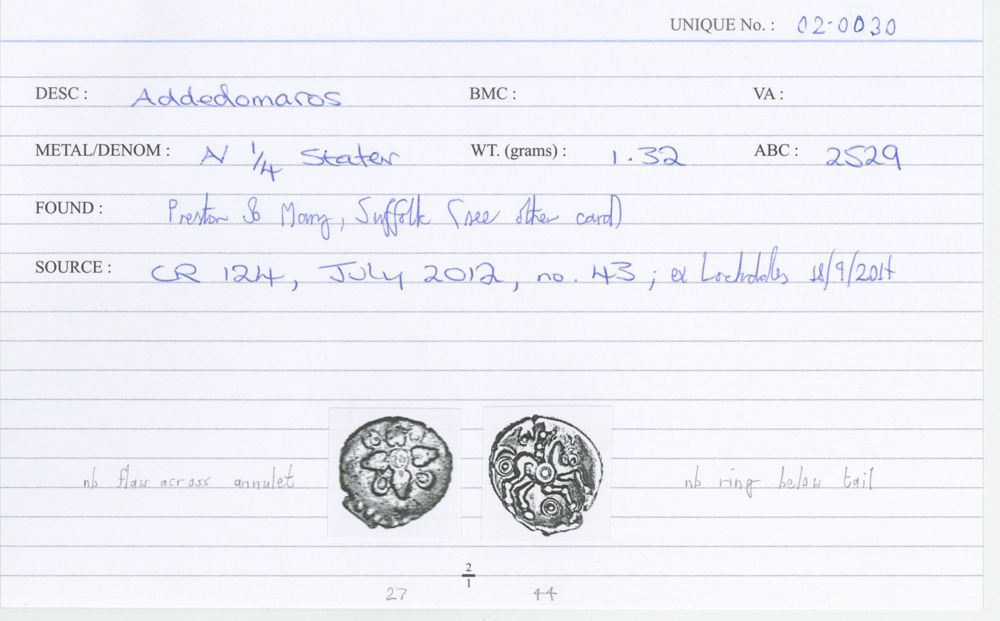 UNIQUE No. : 02-0030
DESC : Addedomaros BMC : VA :
METAL/DENOM : AV 1/4 Stater WT. (grams) : 1.32 ABC : 2529
FOUND : Preston St Mary, Suffolk (see other card)
SOURCE : CR 124, JULY 2012, no. 43 ; ex Lockdales 18/9/2011
nb flaw across annulet
nb ring below tail
2
1
27 44